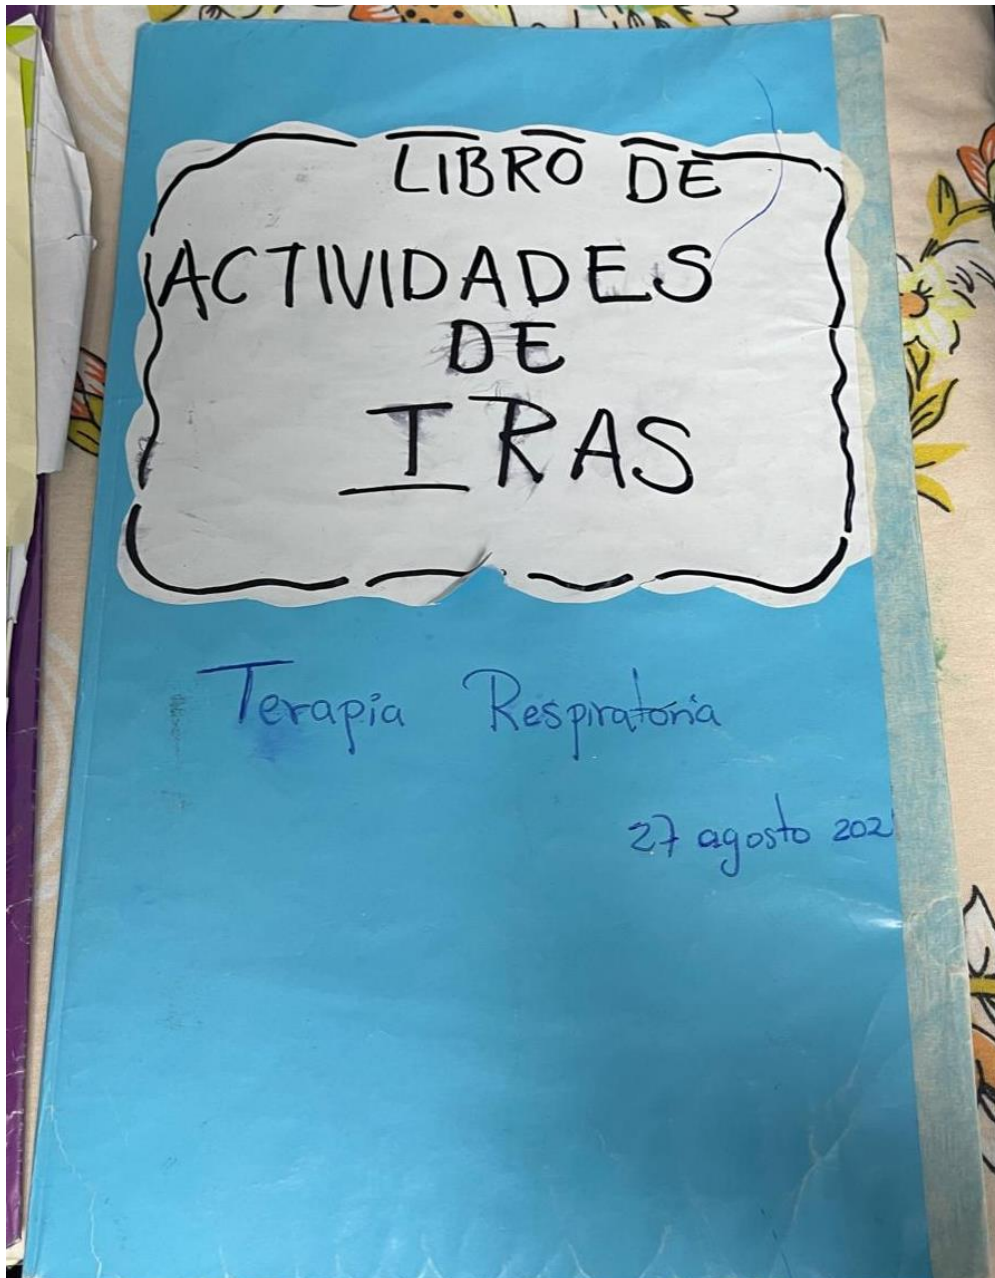 LIBRO DE
ACTIVIDADES
DE
IRAS
Terapia Respiratoria
27 agosto 202